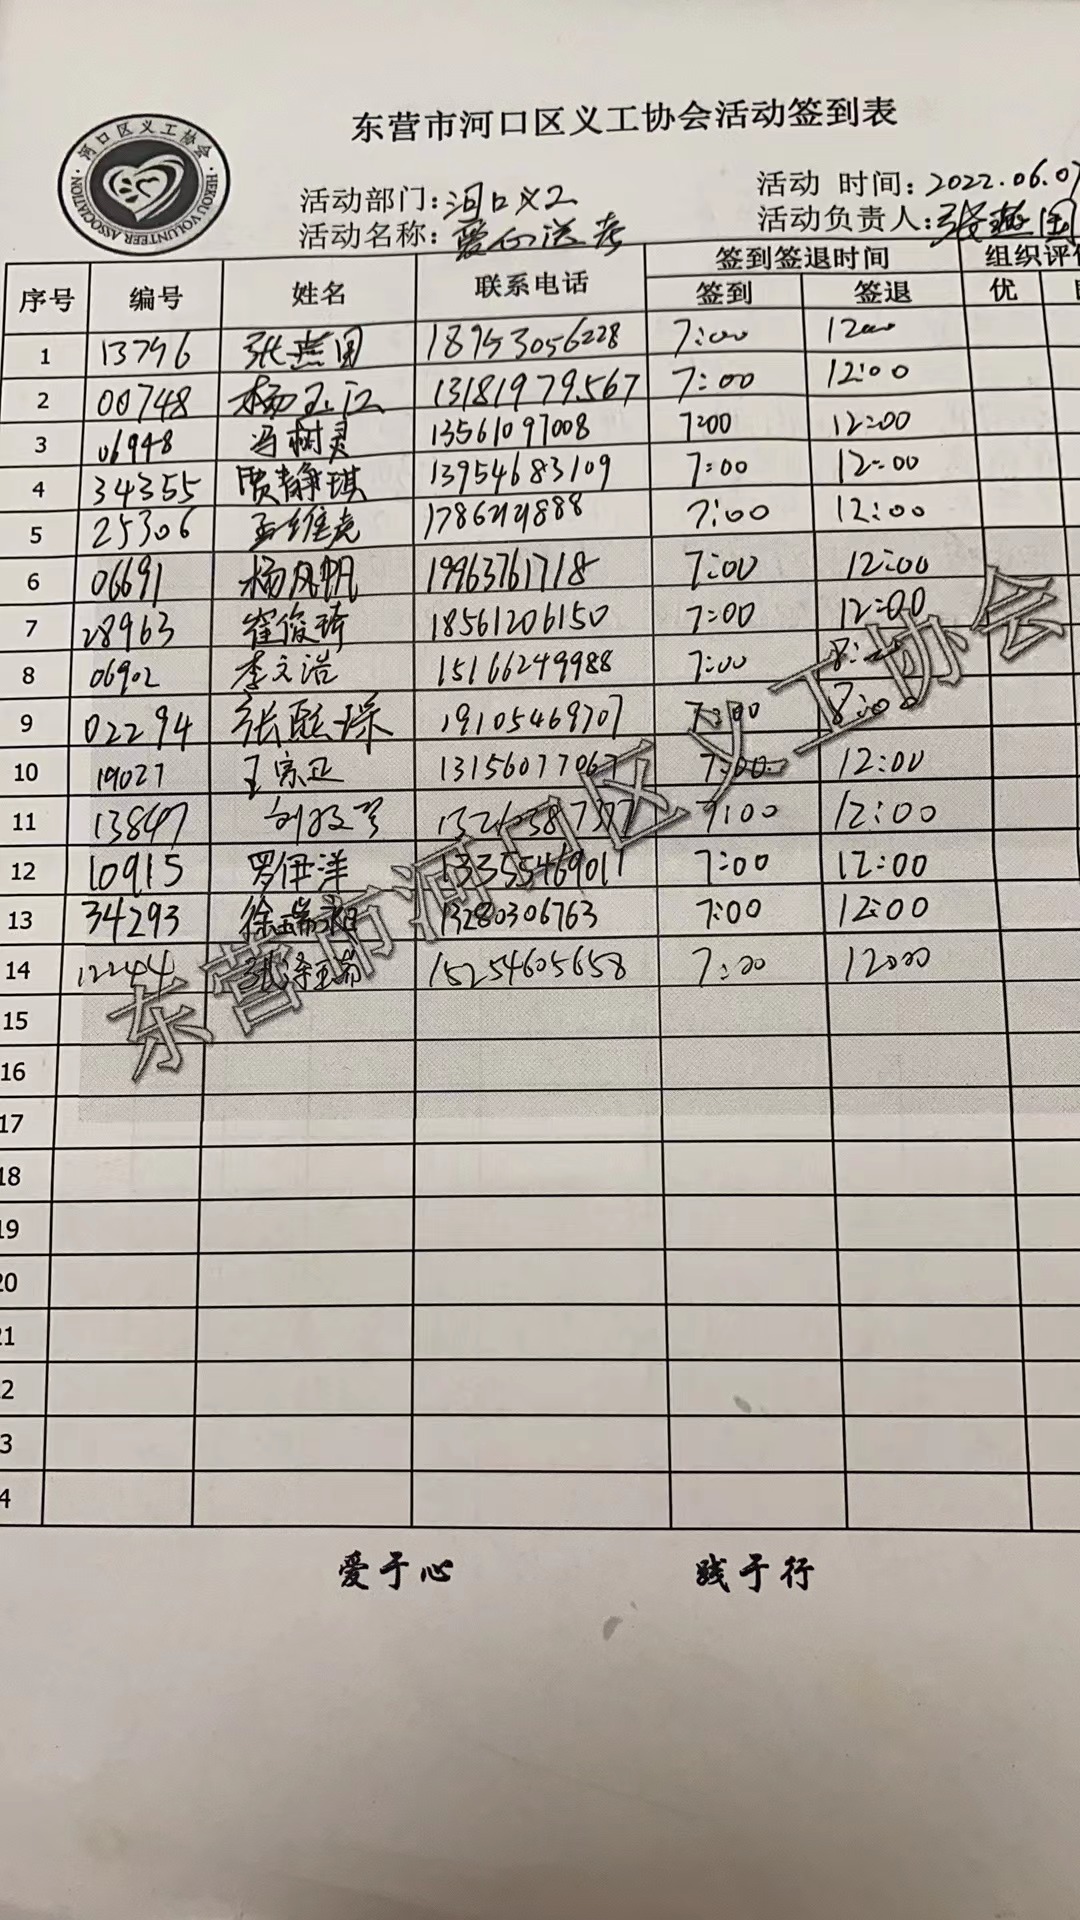 东营市河口区义工协会活动签到表
河口区义工协会
HEKOU VOLUNTEER ASSOCIATION
活动部门：河口义工 活动 时间：2022.06.07
活动名称：爱心送考 活动负责人：张燕国
序号 编号 姓名 联系电话 签到签退时间 组织评
签到 签退 优
1 13796 张燕国 18753056228 7:00 12:00
2 00748 杨玉江 13181979567 7:00 12:00
3 06948 冯树灵 13561097008 7:00 12:00
4 34355 贾静琪 13954683109 7:00 12:00
5 25306 孟维虎 7:00 12:00
6 06691 杨风帆 19963761718 7:00 12:00
7 28963 崔俊琦 18561206150 7:00 12:00
8 06902 李文浩 15166249988 7:00
9 02294 19105469707 7:00 8:00
10 19027 王家正 7:00 12:00
11 7:00 12:00
12 10915 罗伊洋 13355469011 7:00 12:00
13 34293 13280306763 7:00 12:00
14 12244 15254605658 7:00 12:00
15
16
17
18
19
20
21
2
3
4
东营市河口区义工协会
爱于心 践于行